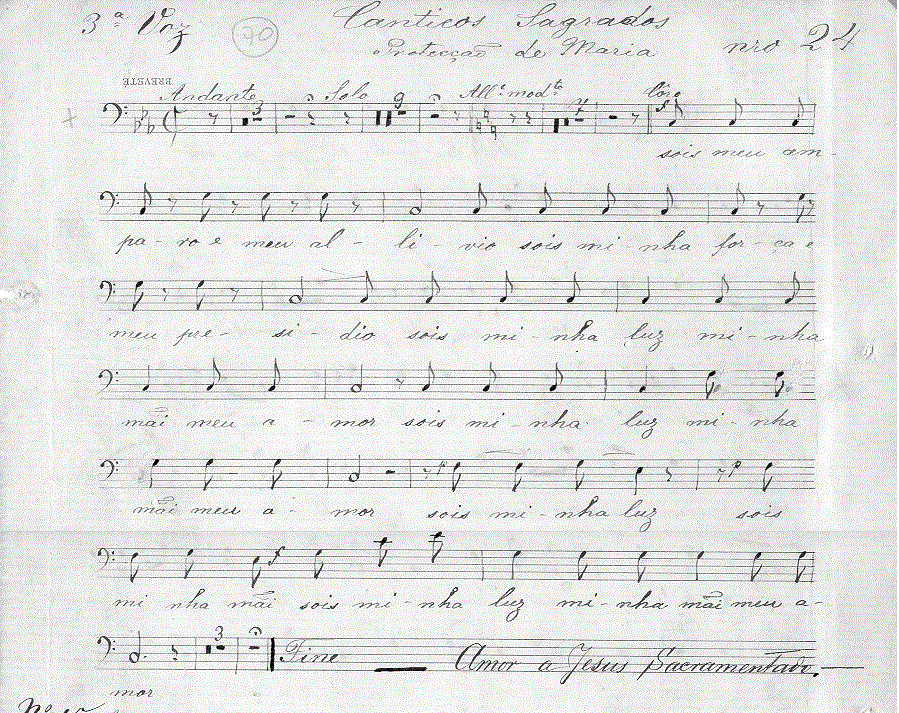 3ª Voz 70 Canticos Sagrados nro 24
Protecção de Maria
BREVETÉ
Andante 3 Solo 9 All.º mod.to 7 Côro
sois meu am-
pa-ro e meu al-li-vio sois mi-nha for-ça e
meu pre-si-dio sois mi-nha luz mi-nha
mãi meu a-mor sois mi-nha luz mi-nha
mãi meu a-mor sois mi-nha luz sois
mi nha mãi sois mi-nha luz mi-nha mãi meu a-
3 Fine Amor a Jesus Sacramentado.
mor